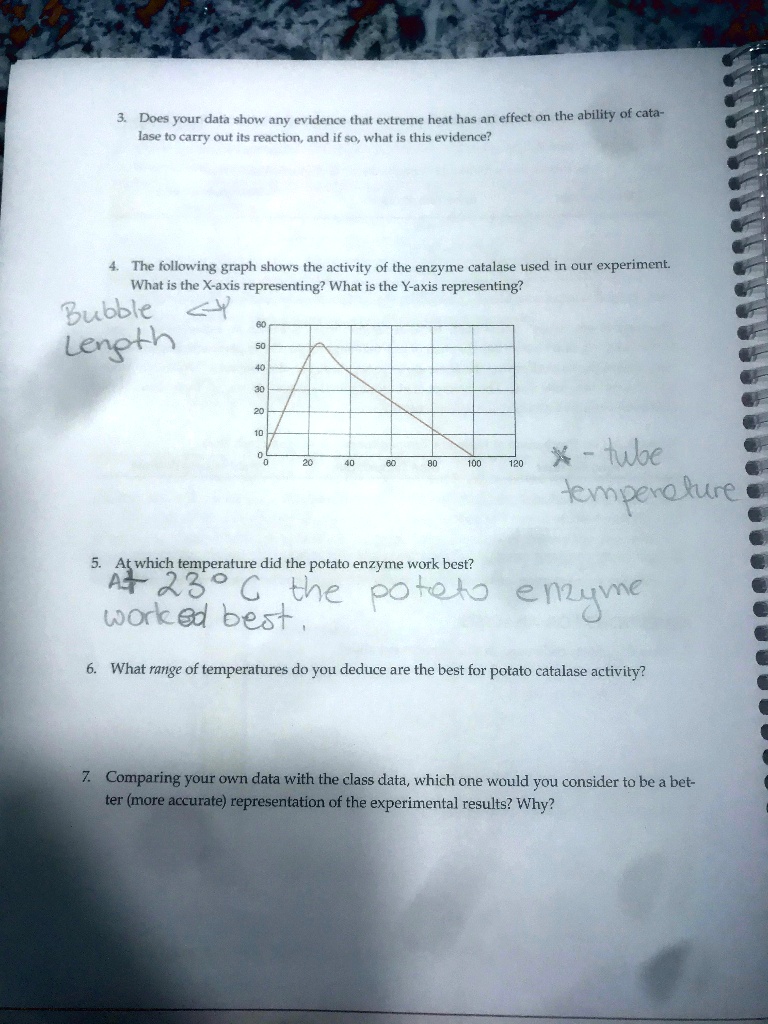 3. Does your data show any evidence that extreme heat has an effect on the ability of cata-
lase to carry out its reaction, and if so, what is this evidence?
4. The following graph shows the activity of the enzyme catalase used in our experiment.
What is the X-axis representing? What is the Y-axis representing?
Bubble <-Y
Length
60
50
40
30
20
10
0
0 20 40 60 80 100 120
X - tube
temperature
5. At which temperature did the potato enzyme work best?
At 23° C the potato enzyme
worked best.
6. What range of temperatures do you deduce are the best for potato catalase activity?
7. Comparing your own data with the class data, which one would you consider to be a bet-
ter (more accurate) representation of the experimental results? Why?